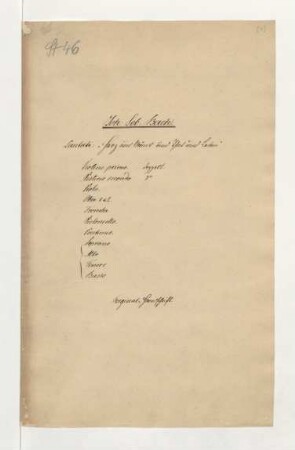 46
Joh. Seb. Bach
Cantate: "Herz und Mund und That und Leben"
Violino primo doppelt
Violino secondo d°
Viola
Oboe 1 & 2
Tromba
Violoncello
Continuo
Soprano
Alto
Tenore
Basso
Original-Handschrift.